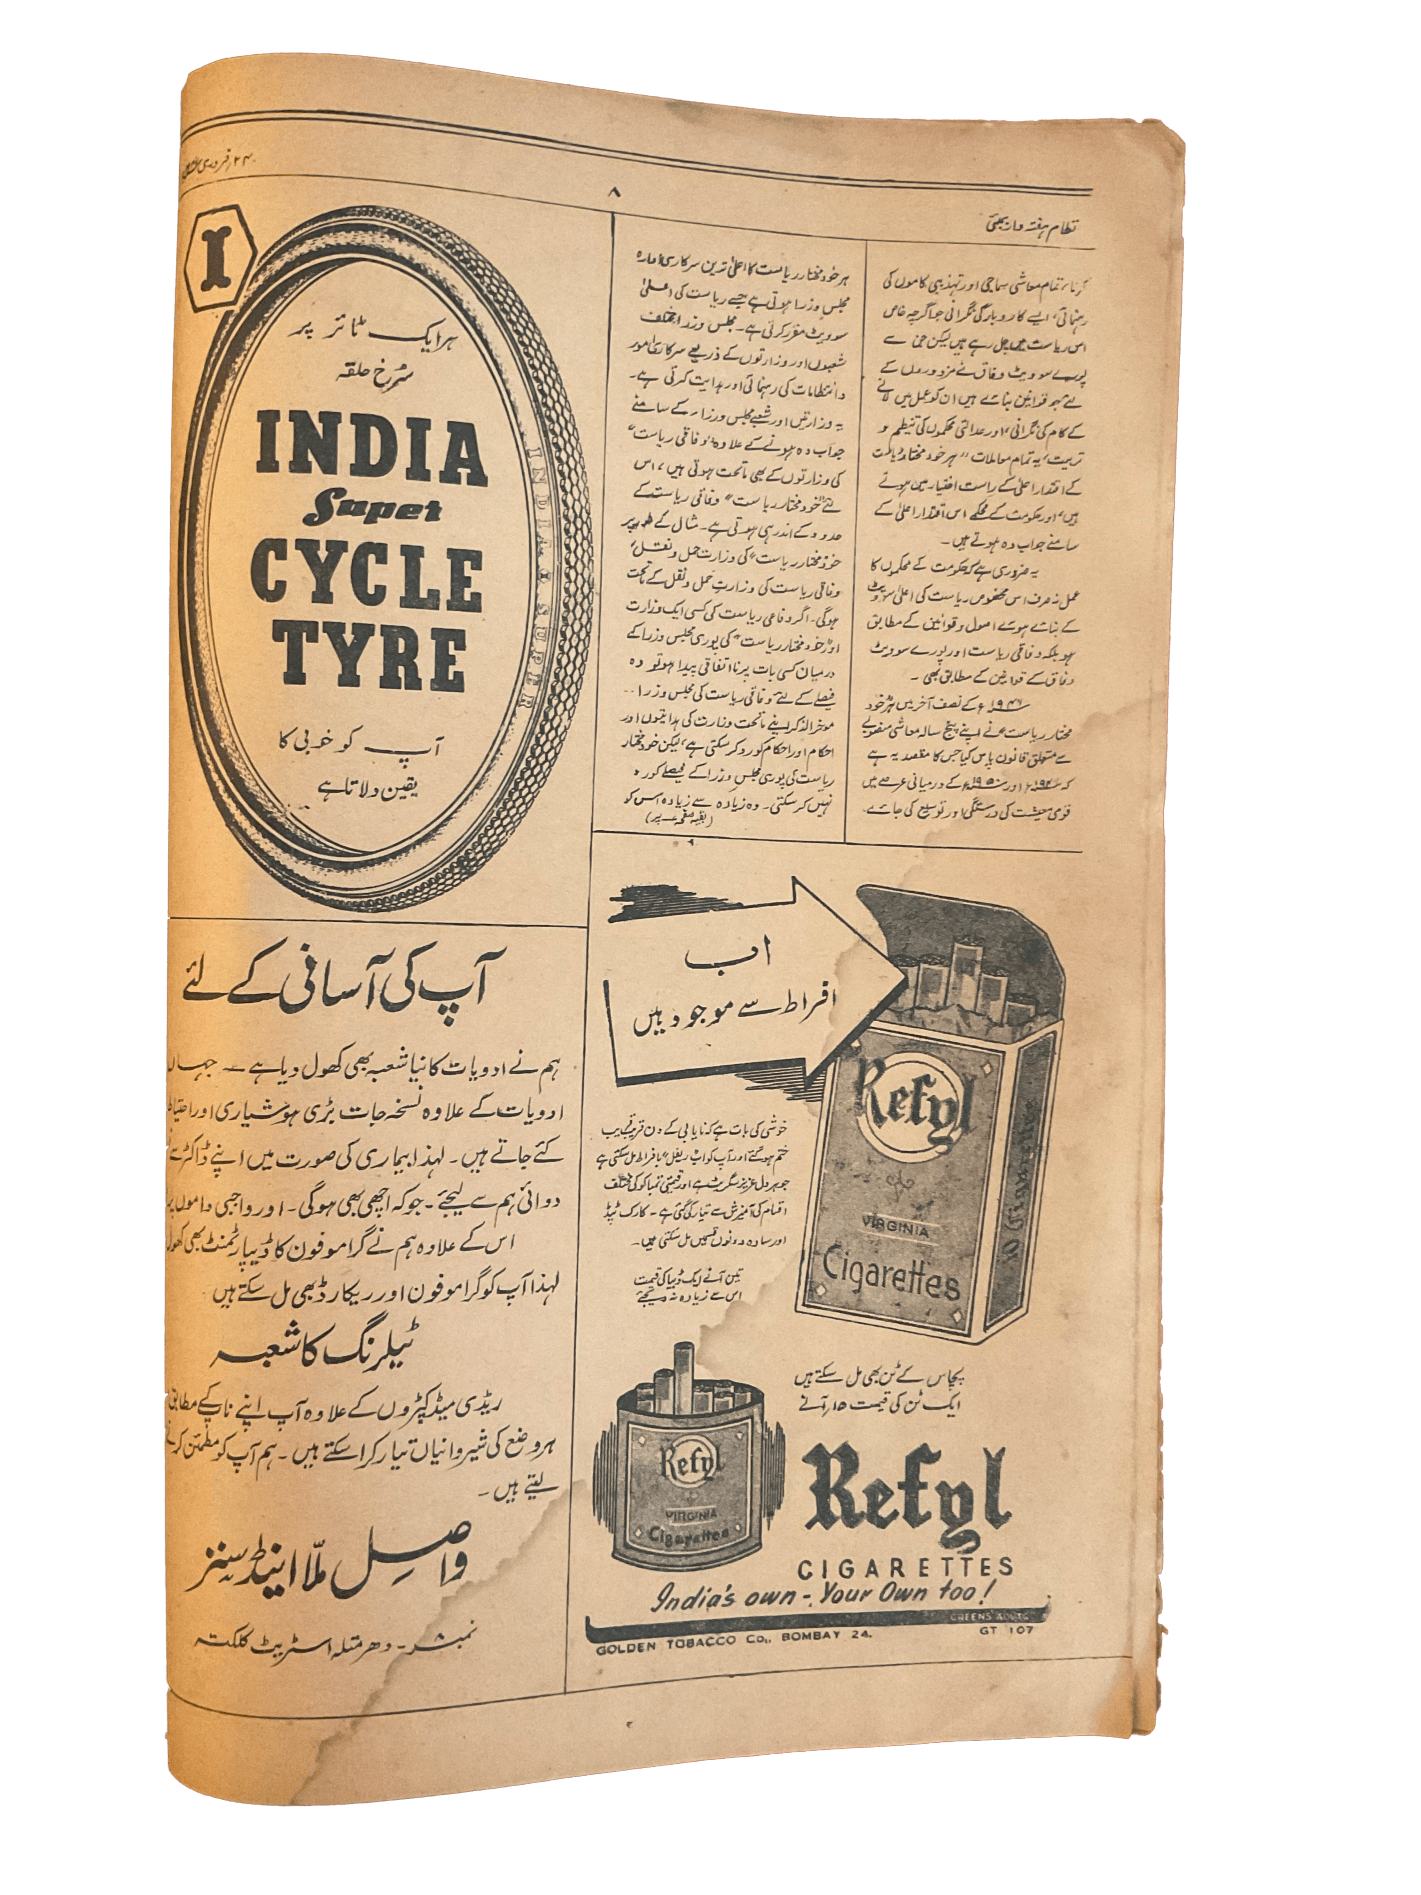 نظام ہفتہ وار بمبئی
۸
۲۴ فروری
کرنا، تمام معاشی سماجی اور تہذیبی کاموں کی
رہنمائی، ایسے کاروبار کی نگرانی جو اگرچہ خاص
اس ریاست میں چل رہے ہیں لیکن جن سے
پورے سوویٹ وفاق نے مزدوروں کے
لئے جو قوانین بنائے ہیں ان کو عمل میں لانے
کے کام کی نگرانی، اور عدالتی محکموں کی تنظیم و
تربیت، یہ تمام معاملات "ہر خود مختار ریاست
کے اقتدار اعلیٰ کے راست اختیار میں ہوتے
ہیں، اور حکومت کے محکمے اس اقتدار اعلیٰ کے
سامنے جواب دہ ہوتے ہیں۔
یہ ضروری ہے کہ حکومت کے محکموں کا
عمل نہ صرف اس مخصوص ریاست کی اعلیٰ سوویٹ
کے بنائے ہوئے اصول و قوانین کے مطابق
ہو بلکہ وفاقی ریاست اور پورے سوویٹ
وفاق کے قوانین کے مطابق بھی۔
۱۹۴۶ء کے نصف آخر میں ہر خود
مختار ریاست نے اپنے پنج سالہ معاشی منصوبے
سے متعلق قانون پاس کیا جس کا مقصد یہ ہے
کہ ۱۹۴۶ء اور ۱۹۵۰ء کے درمیانی عرصے میں
قومی معیشت کی درستگی اور توسیع کی جائے۔
ہر خود مختار ریاست کا اعلیٰ ترین سرکاری ادارہ
مجلس وزرا ہوتی ہے جسے ریاست کی اعلیٰ
سوویٹ مقرر کرتی ہے۔ مجلس وزرا مختلف
شعبوں اور وزارتوں کے ذریعے سرکاری امور
و انتظامات کی رہنمائی اور ہدایت کرتی ہے۔
یہ وزارتیں اور شعبے مجلس وزرا کے سامنے
جواب دہ ہونے کے علاوہ "وفاقی ریاست"
کی وزارتوں کے بھی ماتحت ہوتی ہیں، اس
لئے "خود مختار ریاست" وفاقی ریاست کے
حدود کے اندر ہی ہوتی ہے۔ مثال کے طور پر
خود مختار ریاست کی وزارت حمل و نقل،
وفاقی ریاست کی وزارت حمل و نقل کے تحت
ہوگی۔ اگر وفاقی ریاست کی کسی ایک وزارت
اور خود مختار ریاست" کی پوری مجلس وزرا کے
درمیان کسی بات پر نا اتفاقی پیدا ہو تو وہ
فیصلے کے لئے وفاقی ریاست کی مجلس وزرا
موخر الذکر اپنے ماتحت وزارت کی ہدایتوں اور
احکام اور احکام کو رد کر سکتی ہے، لیکن خود مختار
ریاست کی پوری مجلس وزرا کے فیصلے کو رد
نہیں کر سکتی۔ وہ زیادہ سے زیادہ اس کو
(بقیہ صفحہ پر)
I
ہر ایک ٹائر پر
سرخ حلقہ
INDIA
Super
CYCLE
TYRE
آپ کو خوبی کا
یقین دلاتا ہے
INDIA SUPER
آپ کی آسانی کے لئے
ہم نے ادویات کا نیا شعبہ بھی کھول دیا ہے۔ جہاں
ادویات کے علاوہ نسخہ جات بڑی ہوشیاری اور احتیاط
کئے جاتے ہیں۔ لہذا بیماری کی صورت میں اپنے ڈاکٹر سے
دوائی ہم سے لیجئے۔ جو کہ اچھی بھی ہوگی۔ اور واجبی داموں پر
اس کے علاوہ ہم نے گراموفون کا ڈیپارٹمنٹ بھی کھول
لہذا آپ کو گراموفون اور ریکارڈ بھی مل سکتے ہیں
ٹیلرنگ کا شعبہ
ریڈی میڈ کپڑوں کے علاوہ آپ اپنے ناپ کے مطابق
ہر وضع کی شیروانیاں تیار کرا سکتے ہیں۔ ہم آپ کو مطمئن کر
لیتے ہیں۔
واصل ملا اینڈ سنز
نمبر ۸۔ دھرمتلہ اسٹریٹ کلکتہ
اب
افراط سے موجود ہیں
Refyl
VIRGINIA
Cigarettes
10 Cigarettes
خوشی کی بات ہے کہ نایابی کے دن قریب قریب
ختم ہو گئے اور آپ کو اب ریفل با فراط مل سکتی ہے
جو ہر دل عزیز سگریٹ ہے اور قیمتی تمباکو کی مختلف
اقسام کی آمیزش سے تیار کی گئی ہے۔ کارک ٹپڈ
اور سادہ دونوں قسمیں مل سکتی ہیں۔
تین آنے ایک ڈبیا کی قیمت
اس سے زیادہ نہ دیجئے
پچاس کے ٹن بھی مل سکتے ہیں
ایک ٹن کی قیمت ۱۵ر آنے
Refyl
VIRGINIA
Cigarettes
Refyl
CIGARETTES
India's own - Your Own too!
GREENS ADVTG
GOLDEN TOBACCO Co., BOMBAY 24.
GT 107